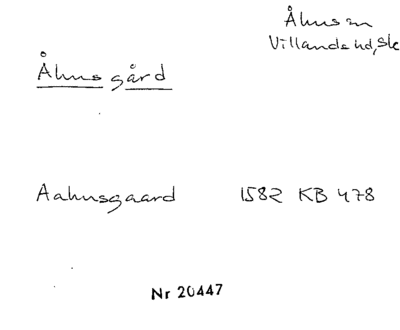 Åhus sn
Villands hd, Sk
Åhusgård
Aahusgaard 1582 KB 478
Nr 20447